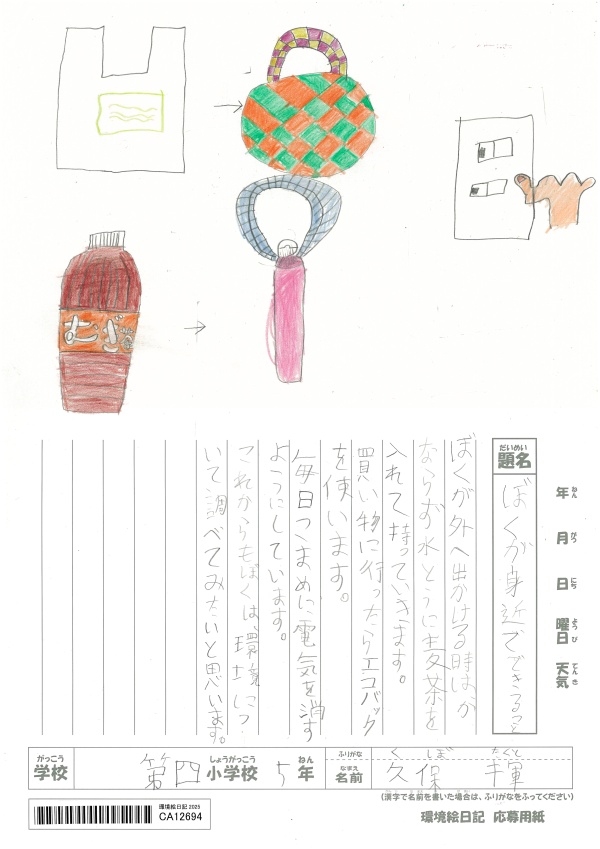 むぎ茶
だいめい
題名
ぼくが身近でできること
年 ねん
月 がつ
日 にち
曜日 ようび
天気 てんき
ぼくが外へ出かける時は、か
ならず水とうに麦茶を
入れて持っていきます。
買い物に行ったらエコバック
を使います。
毎日こまめに電気を消す
ようにしています。
これからもぼくは、環境につ
いて調べてみたいと思います。
がっこう
学校
第四
しょうがっこう
小学校
5
ねん
年
ふりがな
く ぼ たくと
なまえ
名前
久保
輝
(漢字で名前を書いた場合は、ふりがなをふってください)
環境絵日記 2025
CA12694
環境絵日記 応募用紙